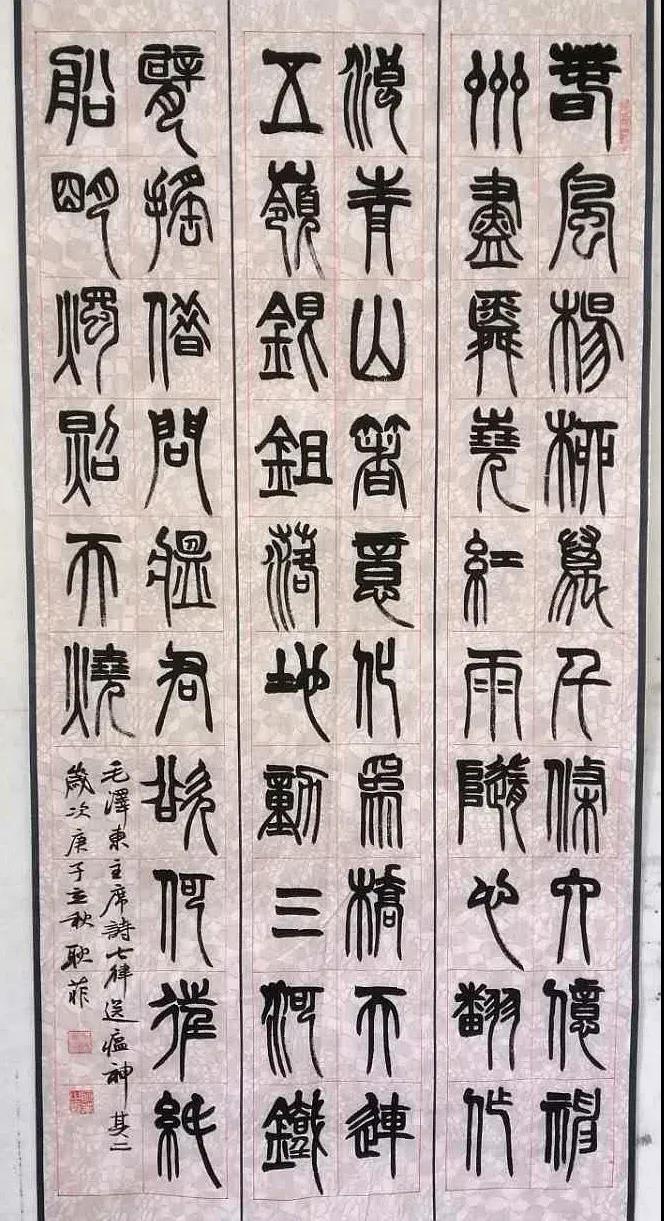 春風楊柳萬千條六億神
州盡舜堯紅雨隨心翻作
浪青山箸意化為橋天連
五嶺銀鉏落地動三河鐵
臂搖借問瘟君欲何往紙
船朙燭照天燒
毛澤東主席詩七律送瘟神其二
歲次庚子立秋耿菲